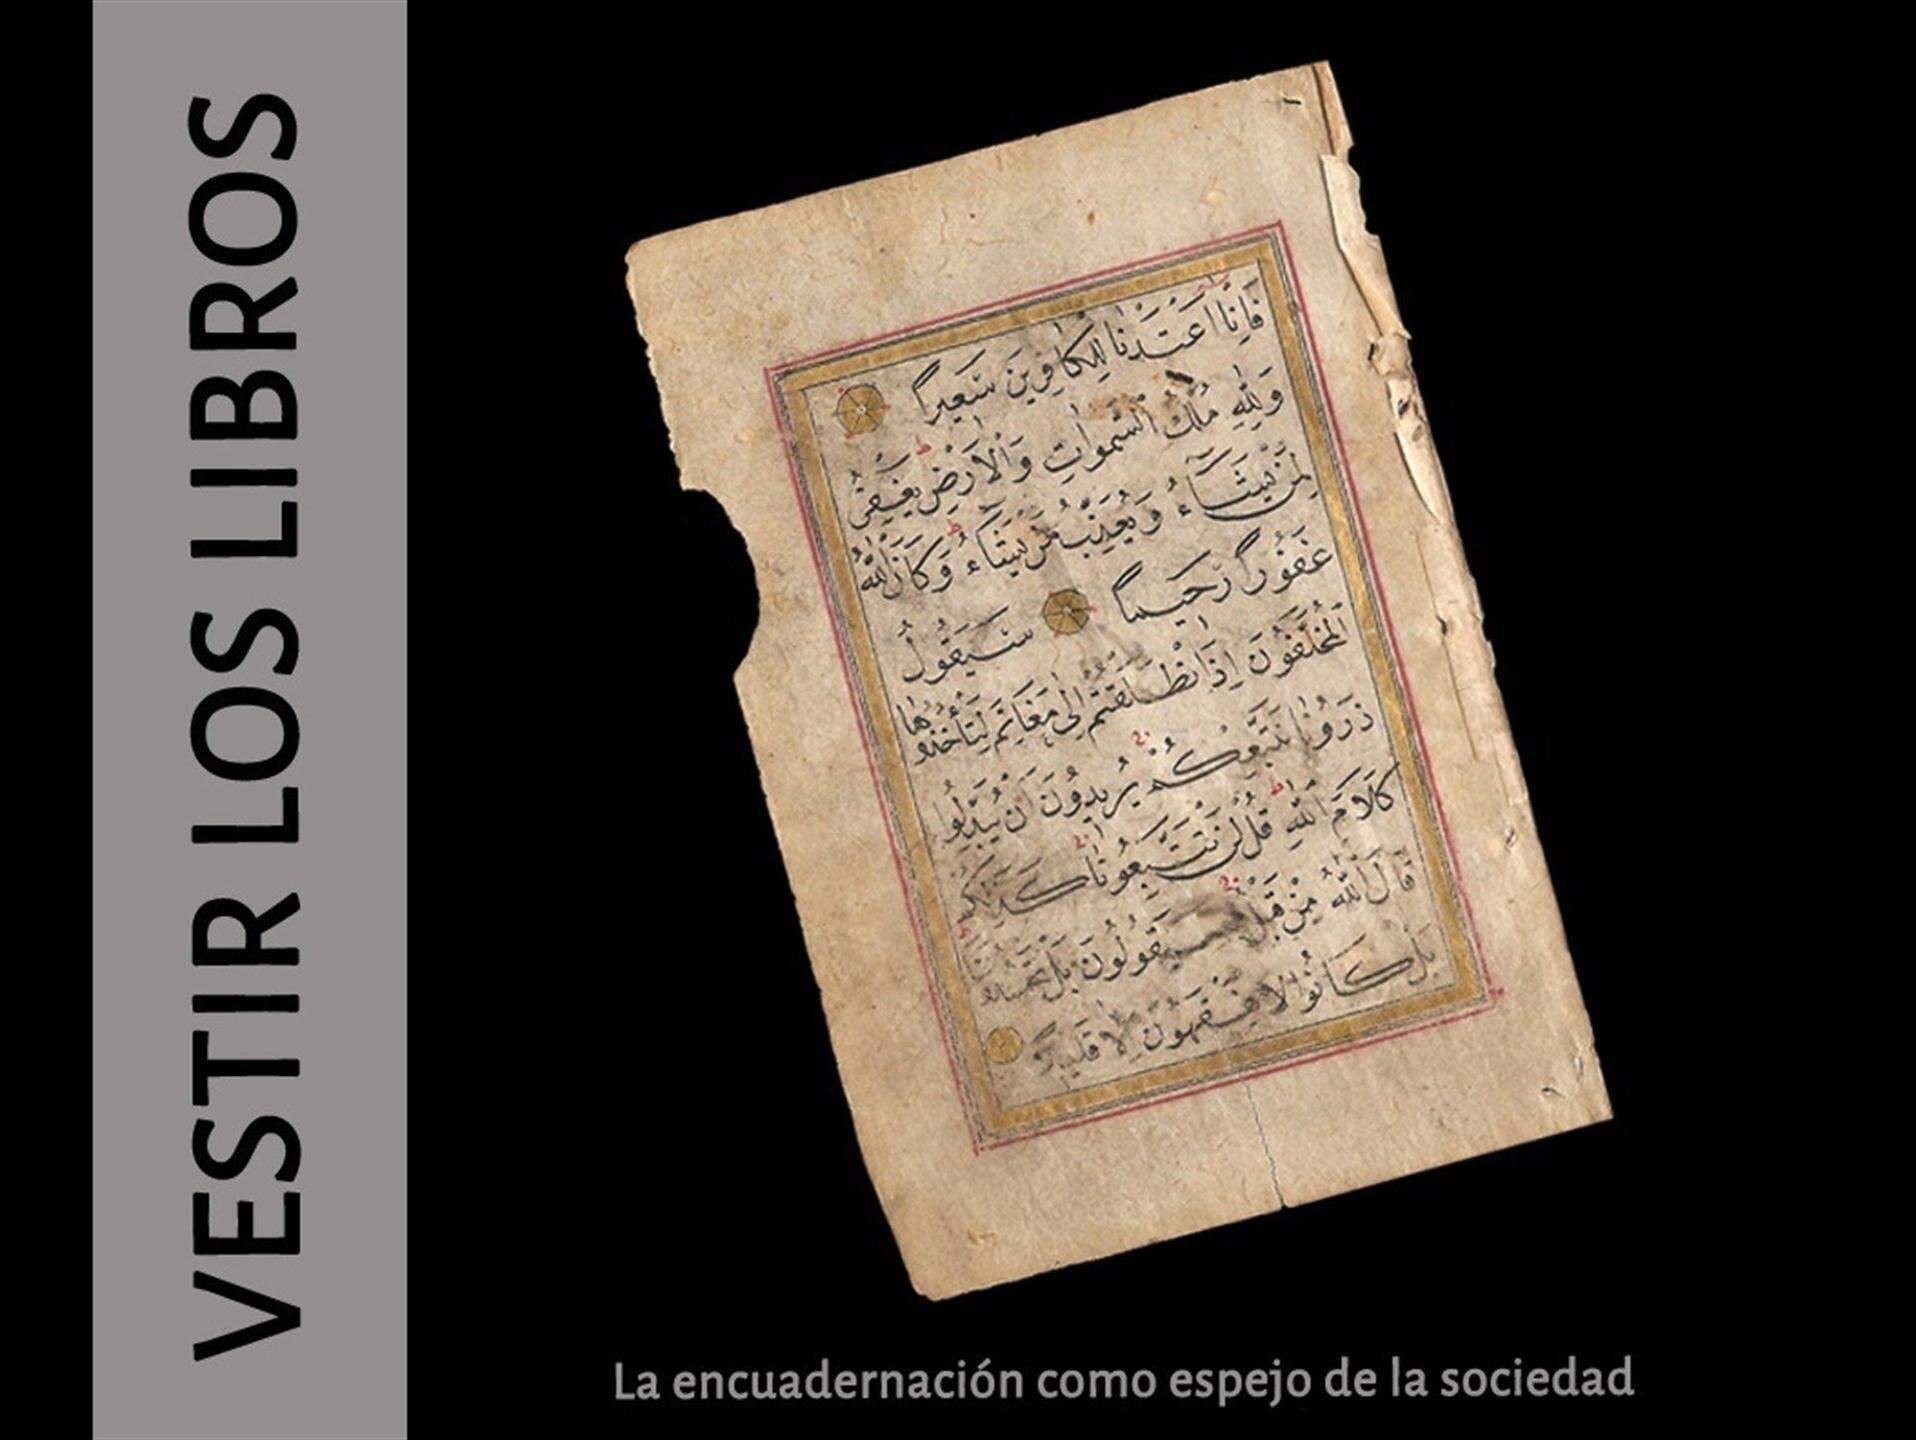 VESTIR LOS LIBROS
فَإِنَّا اَعْتَدْنَا لِلْكَافِرِينَ سَعِيرًا
وَلِلّٰهِ مُلْكُ السَّمٰوَاتِ وَالْاَرْضِ يَغْفِرُ
لِمَنْ يَشَآءُ وَيُعَذِّبُ مَنْ يَشَآءُ وَكَانَ اللّٰهُ
غَفُورًا رَحِيمًا سَيَقُولُ
الْمُخَلَّفُونَ اِذَا انْطَلَقْتُمْ اِلٰى مَغَانِمَ لِتَأْخُذُوهَا
ذَرُونَا نَتَّبِعْكُمْ يُرِيدُونَ اَنْ يُبَدِّلُوا
كَلَامَ اللّٰهِ قُلْ لَنْ تَتَّبِعُونَا كَذٰلِكُمْ
قَالَ اللّٰهُ مِنْ قَبْلُ فَسَيَقُولُونَ بَلْ تَحْسُدُونَنَا
بَلْ كَانُوا لَا يَفْقَهُونَ اِلَّا قَلِيلًا
La encuadernación como espejo de la sociedad